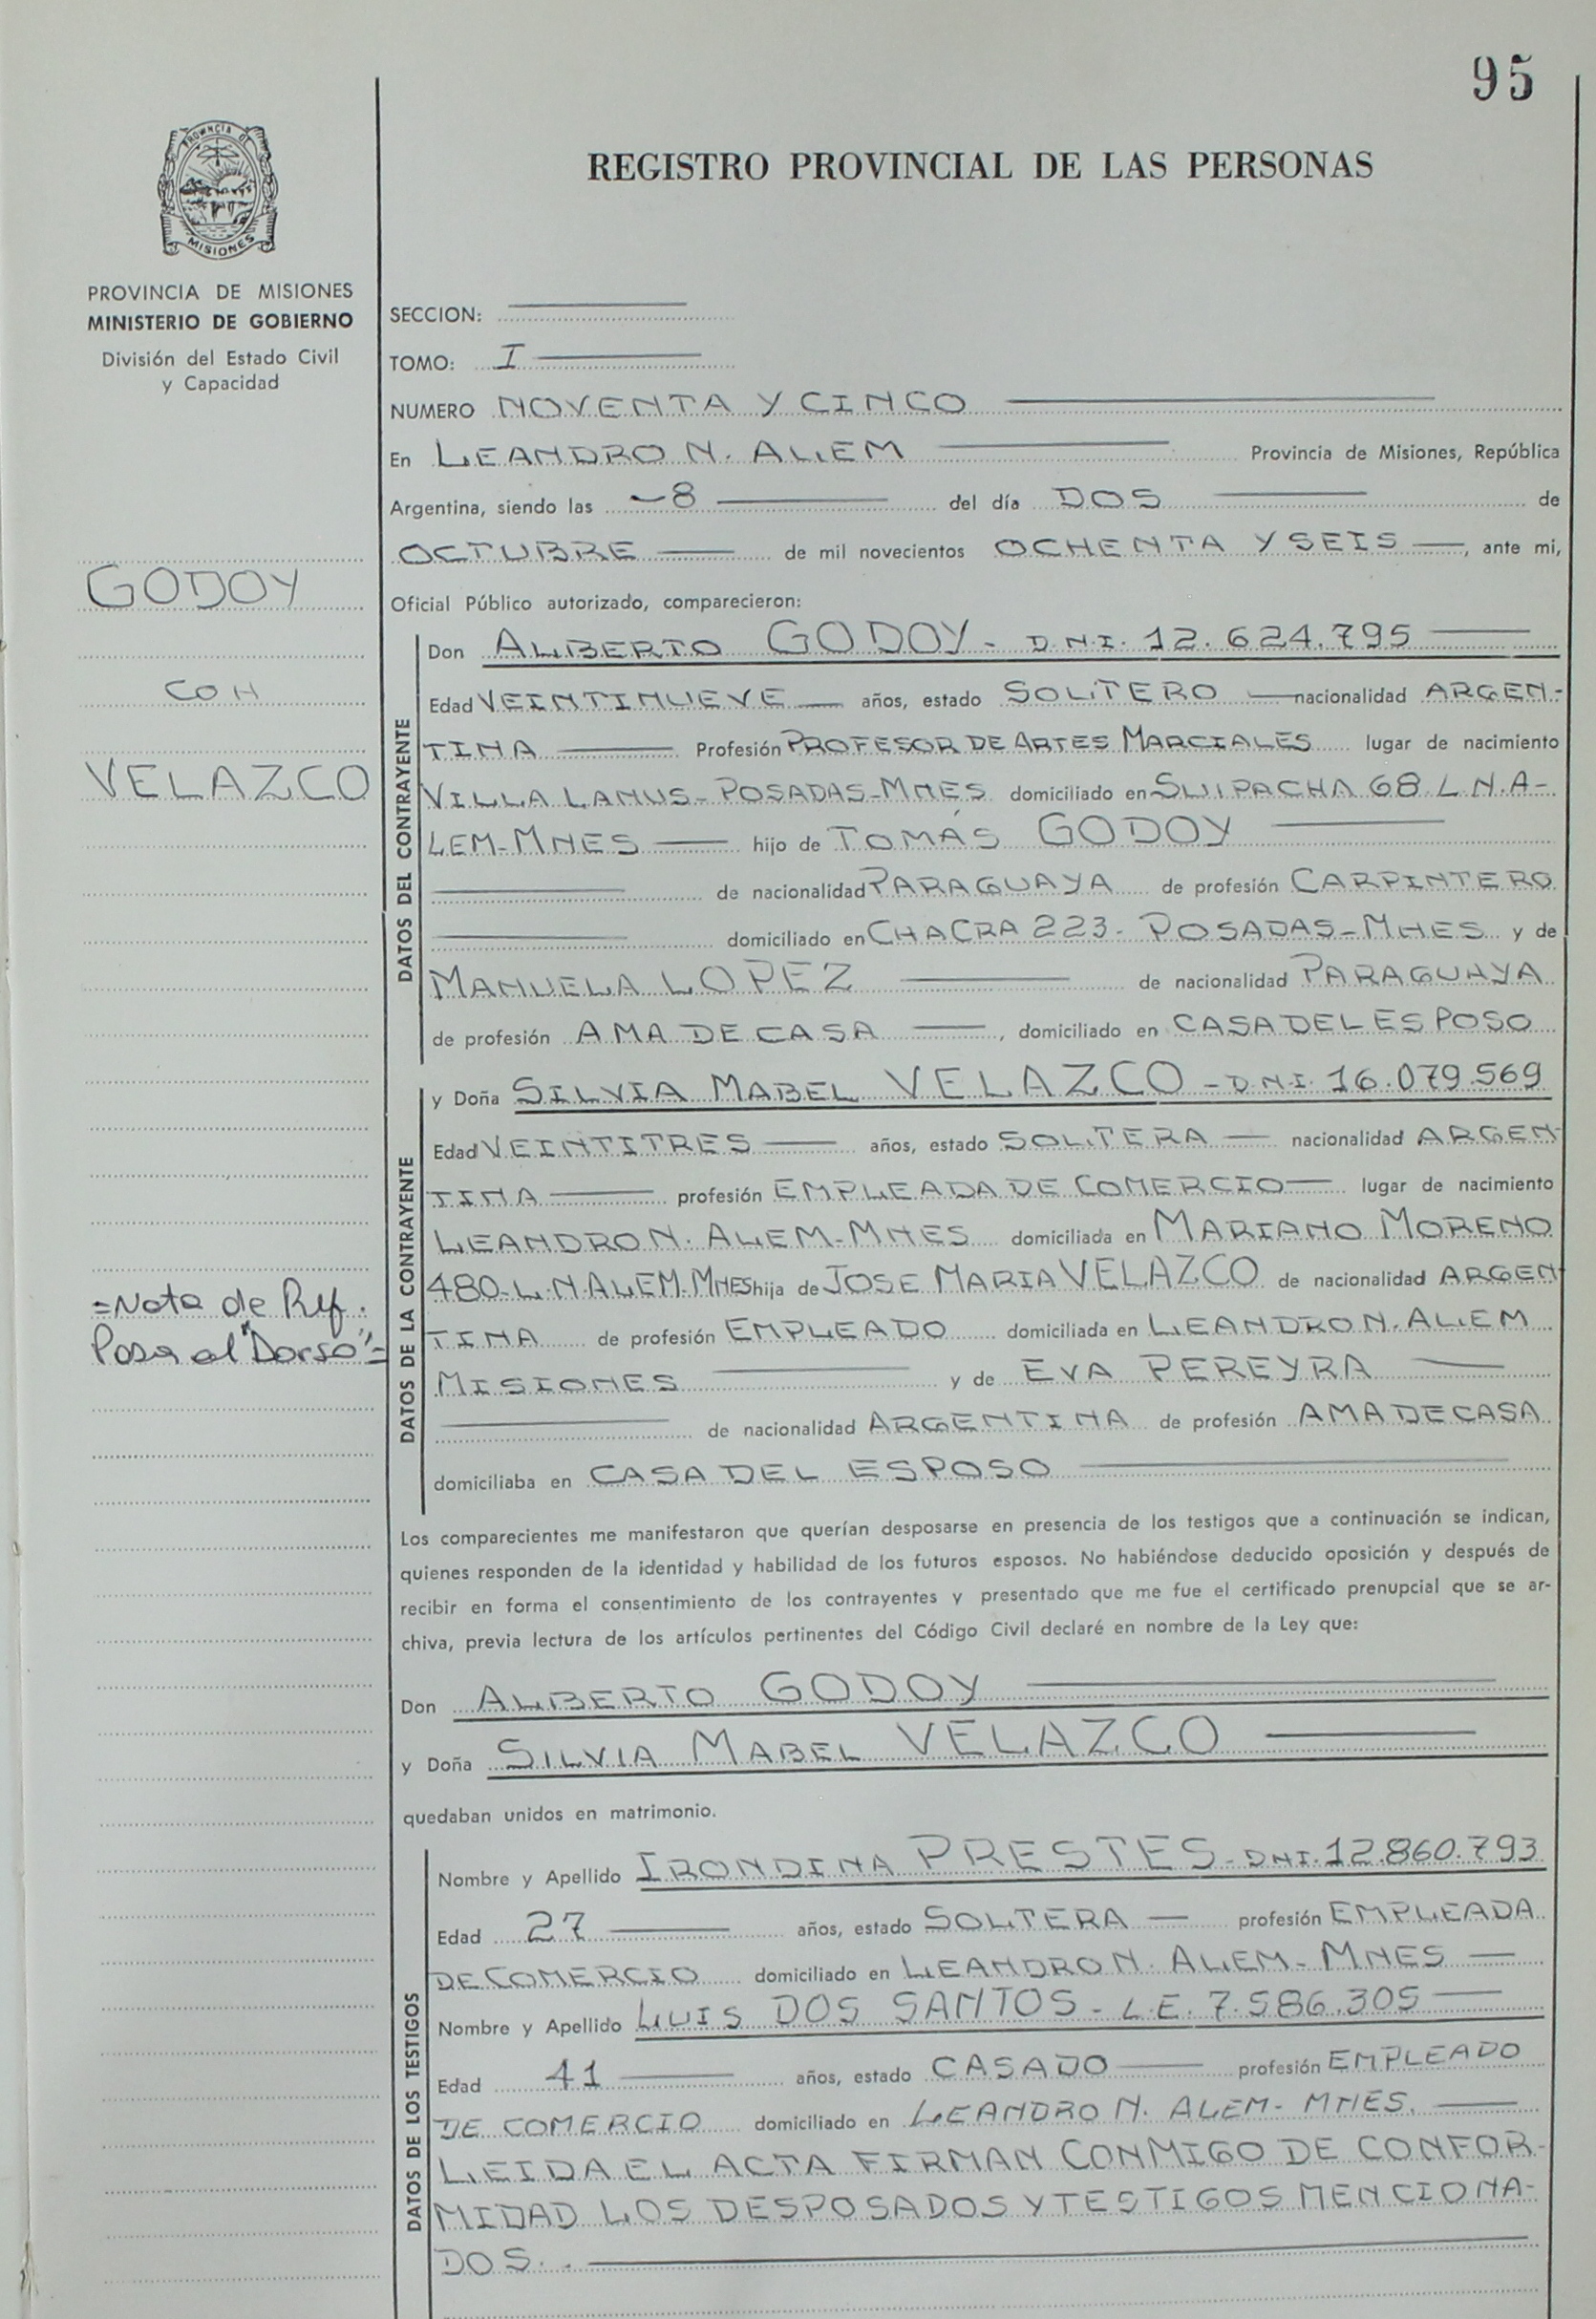 95
PROVINCIA DE
MISIONES
REGISTRO PROVINCIAL DE LAS PERSONAS
PROVINCIA DE MISIONES
MINISTERIO DE GOBIERNO
División del Estado Civil
y Capacidad
SECCION:
TOMO: I
NUMERO NOVENTA Y CINCO
En LEANDRO N. ALEM Provincia de Misiones, República
Argentina, siendo las -8 del día DOS de
OCTUBRE de mil novecientos OCHENTA Y SEIS, ante mi,
Oficial Público autorizado, comparecieron:
GODOY
CON
VELAZCO
=Nota de Ref.
Pasa al "Dorso"=
DATOS DEL CONTRAYENTE
Don ALBERTO GODOY - D.N.I. 12.624.795
Edad VEINTINUEVE años, estado SOLTERO nacionalidad ARGEN-
TINA Profesión PROFESOR DE ARTES MARCIALES lugar de nacimiento
VILLA LANUS-POSADAS-MNES domiciliado en SUIPACHA 68 L.N.A-
LEM-MNES hijo de TOMÁS GODOY
de nacionalidad PARAGUAYA de profesión CARPINTERO
domiciliado en CHACRA 223- POSADAS-MNES y de
MANUELA LOPEZ de nacionalidad PARAGUAYA
de profesión AMA DE CASA, domiciliado en CASA DEL ESPOSO
DATOS DE LA CONTRAYENTE
y Doña SILVIA MABEL VELAZCO - D.N.I. 16.079.569
Edad VEINTITRES años, estado SOLTERA nacionalidad ARGEN-
TINA profesión EMPLEADA DE COMERCIO lugar de nacimiento
LEANDRO N. ALEM-MNES domiciliada en MARIANO MORENO
480-L.N.ALEM-MNES hija de JOSE MARIA VELAZCO de nacionalidad ARGEN-
TINA de profesión EMPLEADO domiciliada en LEANDRO N. ALEM
MISIONES y de EVA PEREYRA
de nacionalidad ARGENTINA de profesión AMA DE CASA
domiciliaba en CASA DEL ESPOSO
Los comparecientes me manifestaron que querían desposarse en presencia de los testigos que a continuación se indican,
quienes responden de la identidad y habilidad de los futuros esposos. No habiéndose deducido oposición y después de
recibir en forma el consentimiento de los contrayentes y presentado que me fue el certificado prenupcial que se ar-
chiva, previa lectura de los artículos pertinentes del Código Civil declaré en nombre de la Ley que:
Don ALBERTO GODOY
y Doña SILVIA MABEL VELAZCO
quedaban unidos en matrimonio.
DATOS DE LOS TESTIGOS
Nombre y Apellido IRONDINA PRESTES - DNI. 12.860.793
Edad 27 años, estado SOLTERA profesión EMPLEADA
DE COMERCIO domiciliado en LEANDRO N. ALEM-MNES
Nombre y Apellido LUIS DOS SANTOS - L.E. 7.586.305
Edad 41 años, estado CASADO profesión EMPLEADO
DE COMERCIO domiciliado en LEANDRO N. ALEM- MNES.
LEIDA EL ACTA FIRMAN CONMIGO DE CONFOR-
MIDAD LOS DESPOSADOS Y TESTIGOS MENCIONA-
DOS.